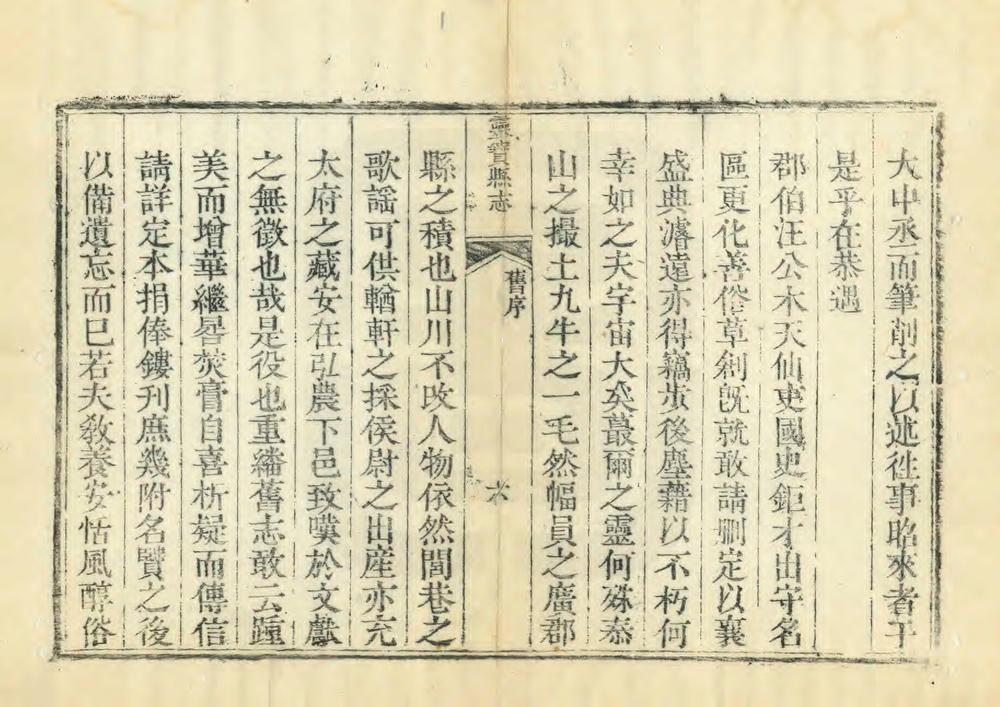 大中丞而筆削之以述徃事昭來者于
是乎在恭遇
郡伯汪公木天仙吏國史鉅才出守名
區更化善俗草創旣就敢請刪定以襄
盛典濬遠亦得竊步後塵藉以不朽何
幸如之夫宇宙大矣蕞爾之靈何殊泰
山之撮土九牛之一毛然幅員之廣郡
靈寶縣志
舊序
六
縣之積也山川不改人物依然閭巷之
歌謡可供輶軒之採侯尉之出産亦充
太府之藏安在弘農下邑致嘆於文獻
之無徵也哉是役也重繙舊志敢云踵
美而增華繼晷焚膏自喜析疑而傳信
請詳定本捐俸鏤刊庶幾附名賢之後
以備遺忘而已若夫敎養安恬風醇俗